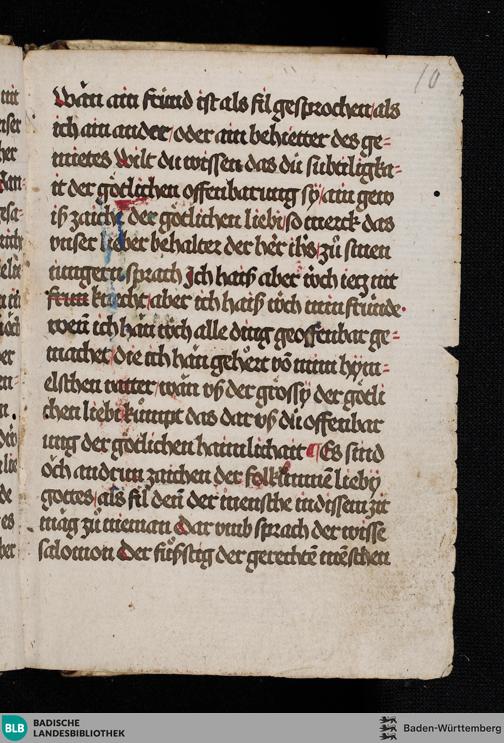 10
Wan ain fründ ist als fil gesprochen / als
ich ain ander / oder ain behietter des ge-
mietes Wilt du wissen das dü subtiligka-
it der götlichen offenbarung sy / ain gew
iß zaichē der götlichen liebi / so merck das
vnser lieber behalter der her ihs / zů sinen
iungern sprach Ich haiß aber üch ietz nit
frün knecht / aber ich haiß üch min fründe
wen̄ ich han üch alle ding geoffenbar ge-
machet / die ich han gehört vō mim hym-
elschen vatter / wan vß der grossÿ der götli
chen liebi kumpt das dar vß dü offenbar
ung der götlichen haimlichait Es sind
och andrün zaichen der folkūmmē liebÿ
gottes / als fil den̄ der mensche in dissem zit
mag zů nieman Dar vmb sprach der wisse
salomon Der fůßstig der gerechtē mēschen
BLB
BADISCHE
LANDESBIBLIOTHEK
Baden-Württemberg